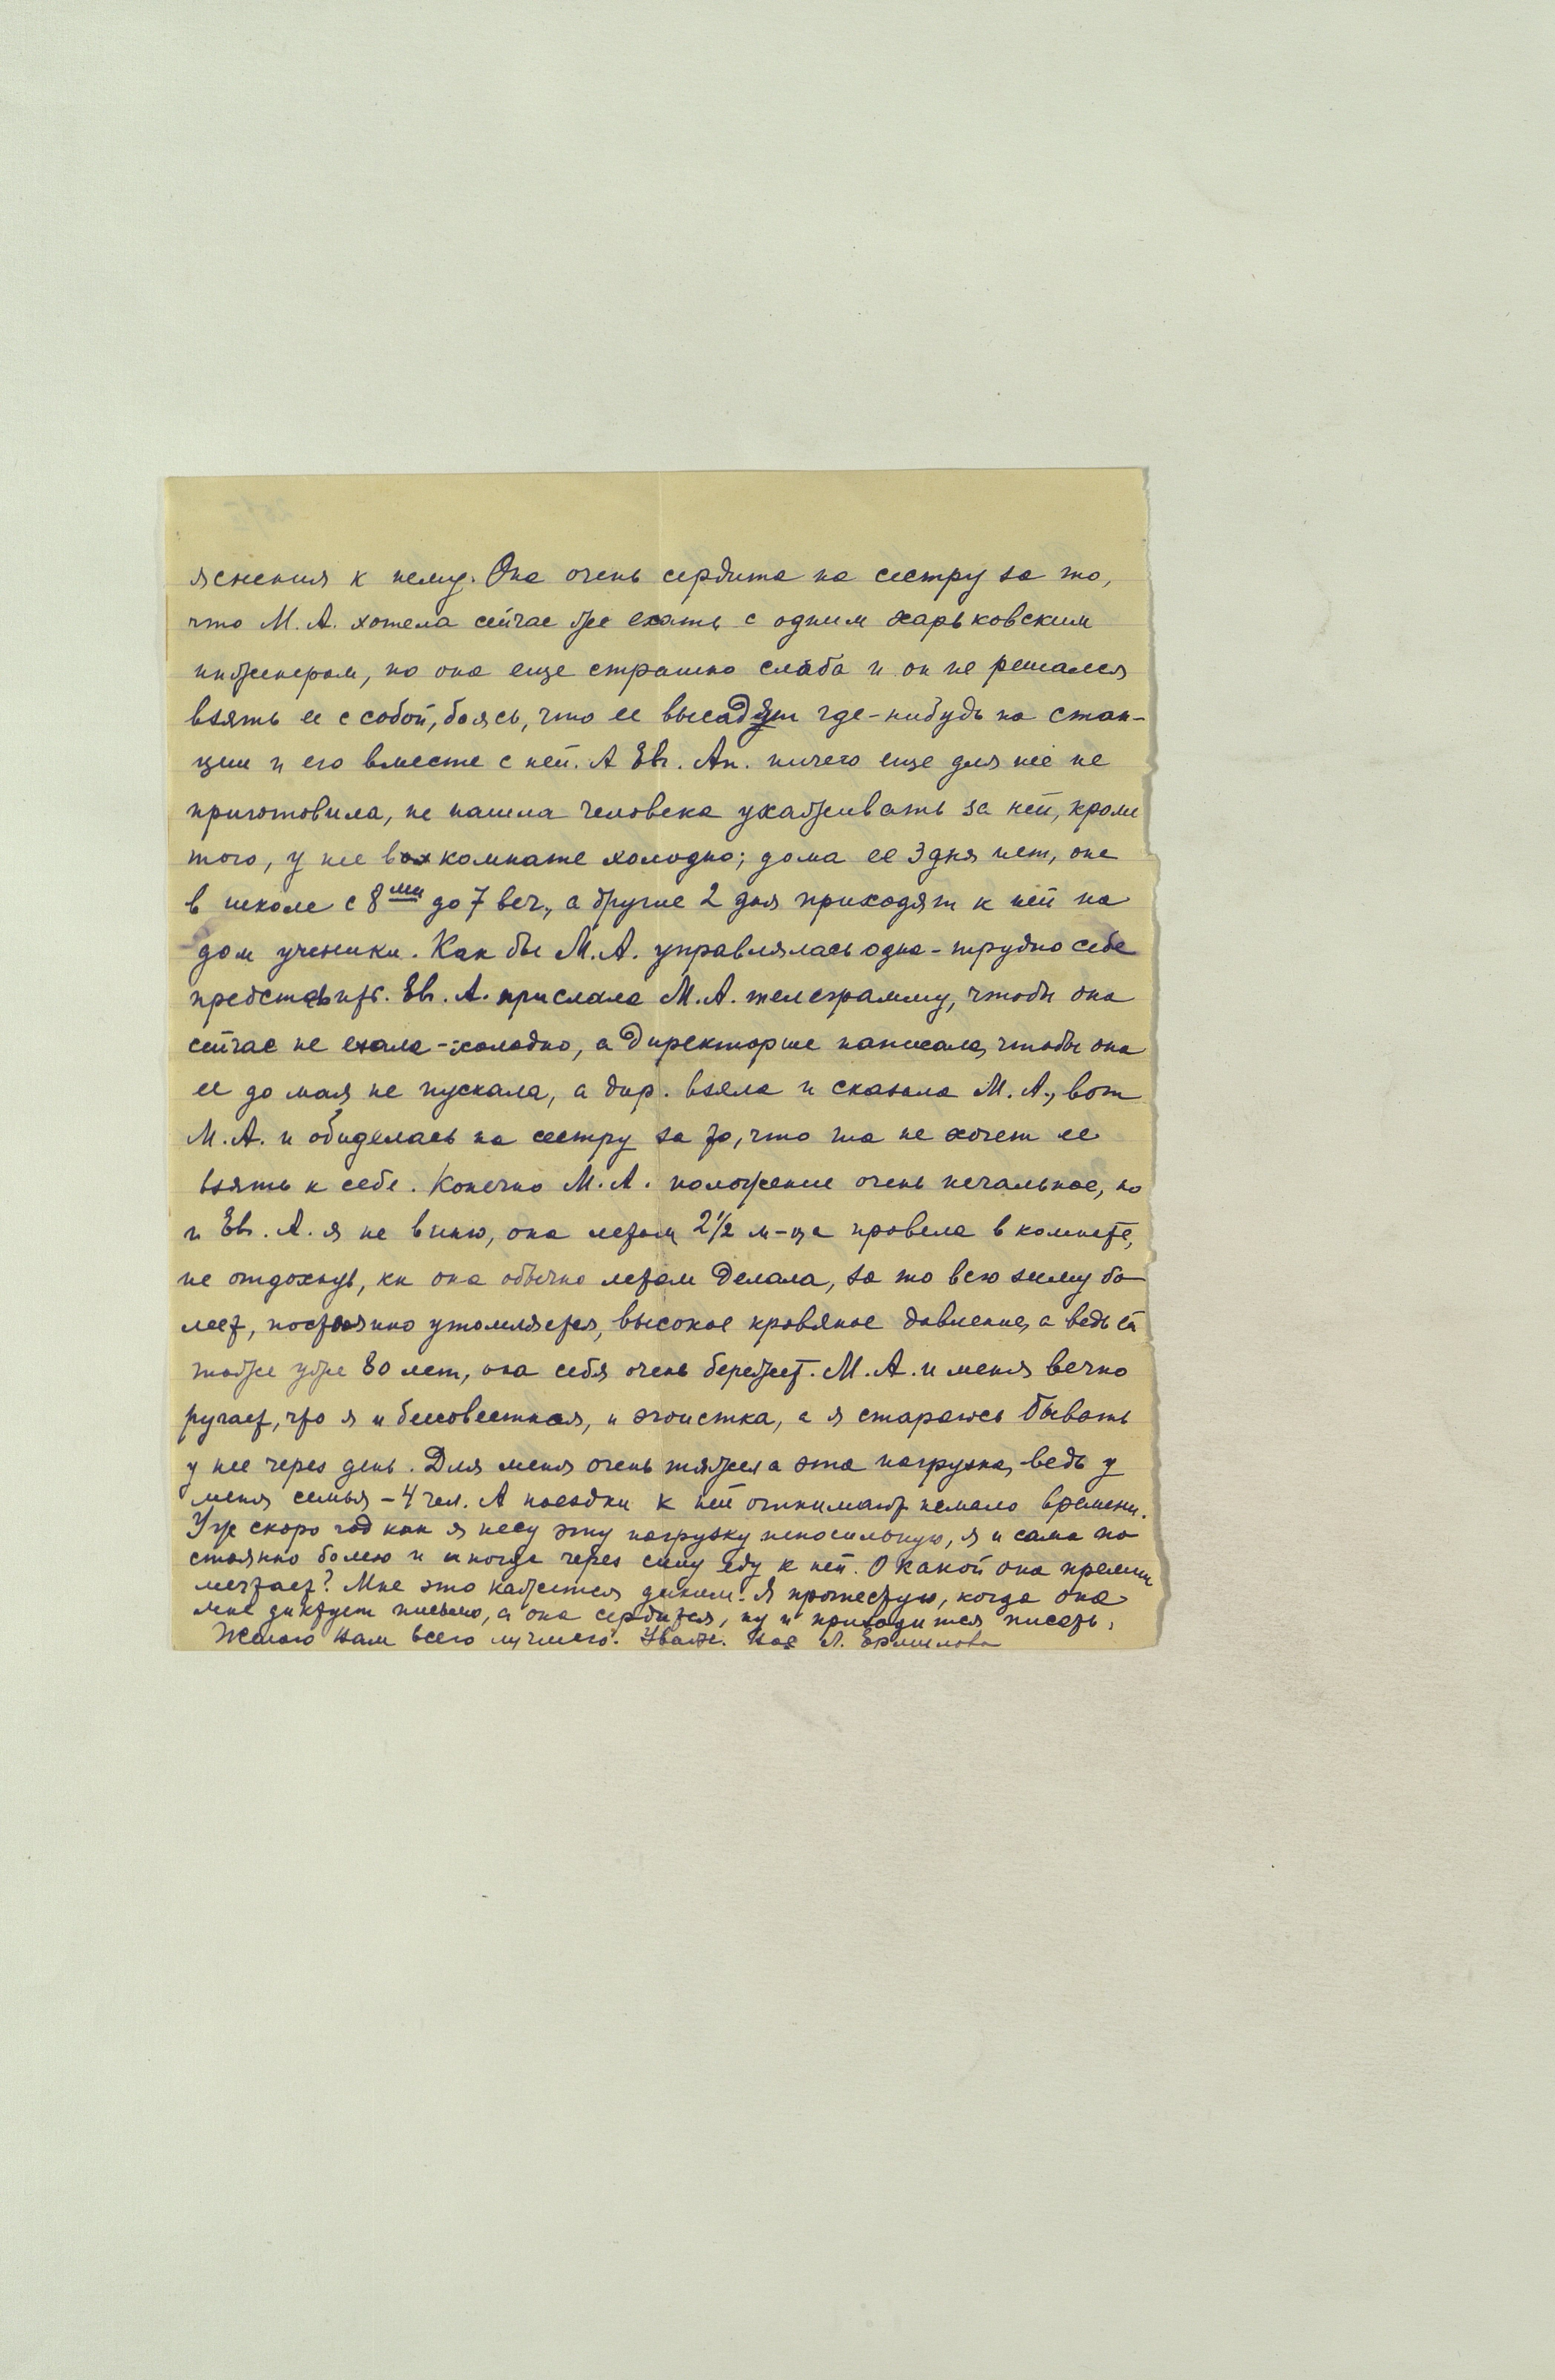 яснения к нему. Она очень сердита на сестру за то,
что М. А. хотела сейчас же ехать с одним харьковским
инженером, но она еще страшно слаба и он не решался
взять ее с собой, боясь, что ее высадят где-нибудь на стан-
ции и его вместе с ней. А Евг. Ал. ничего еще для нее не
приготовила, не нашла человека ухаживать за ней, кроме
того, у нее в комнате холодно; дома ее 3 дня нет, она
в школе с 8ми до 7 веч., а другие 2 дня приходят к ней на
дом ученики. Как бы М. А. управлялась одна – трудно себе
представить. Евг. А. прислала М. А. телеграмму, чтобы она
сейчас не ехала – холодно, а директорше написала, чтобы она
ее до мая не пускала, а дир. взяла и сказала М. А., вот
М. А. и обиделась на сестру за то, что та не хочет ее
взять к себе. Конечно М. А. положение очень печальное, но
и Евг. А. я не виню, она летом 2½ м-ца провела в комнате,
не отдохнув, кк она обычно летом делала, за то всю зиму бо-
леет, постоянно утомляется, высокое кровяное давление, а ведь ей
тоже уже 80 лет, она себя очень бережет. М. А. и меня вечно
ругает, что я и бессовестная, и эгоистка, а я стараюсь бывать
у нее через день. Для меня очень тяжела эта нагрузка, ведь у
меня семья – 4 чел. А поездки к ней отнимают немало времени.
Уже скоро год как я несу эту нагрузку непосильную, я и сама по
стоянно болею и иногда через силу еду к ней. О какой она премии
мечтает? Мне это кажется диким. Я протестую, когда она
мне диктует письмо, а она сердится, ну и приходится писать.
Желаю Вам всего лучшего. Уваж. Вас Л. Ермилова